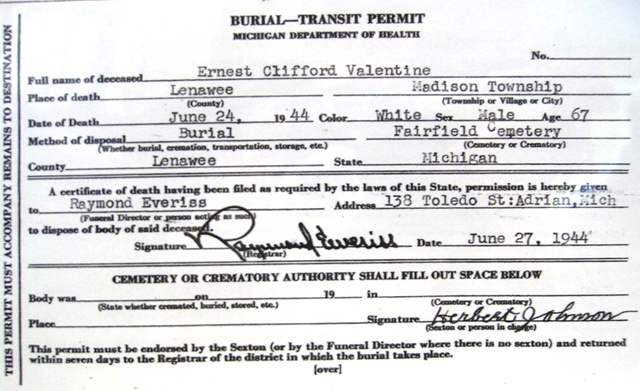 BURIAL—TRANSIT PERMIT
MICHIGAN DEPARTMENT OF HEALTH
No.
Full name of deceased Ernest Clifford Valentine
Place of death Lenawee Madison Township
(County) (Township or Village or City)
Date of Death June 24, 1944 Color White Sex Male Age 67
Method of disposal Burial Fairfield Cemetery
(Whether burial, cremation, transportation, storage, etc.) (Cemetery or Crematory)
County Lenawee State Michigan
A certificate of death having been filed as required by the laws of this State, permission is hereby given
to Raymond Everiss Address 138 Toledo St:Adrian,Mich
(Funeral Director or person acting as such)
to dispose of body of said deceased.
Signature Raymond Everiss Date June 27, 1944
(Registrar)
CEMETERY OR CREMATORY AUTHORITY SHALL FILL OUT SPACE BELOW
Body was on 19 in
(State whether cremated, buried, stored, etc.) (Cemetery or Crematory)
Place Signature Herbert Johnson
(Sexton or person in charge)
This permit must be endorsed by the Sexton (or by the Funeral Director where there is no sexton) and returned
within seven days to the Registrar of the district in which the burial takes place.
[over]
THIS PERMIT MUST ACCOMPANY REMAINS TO DESTINATION